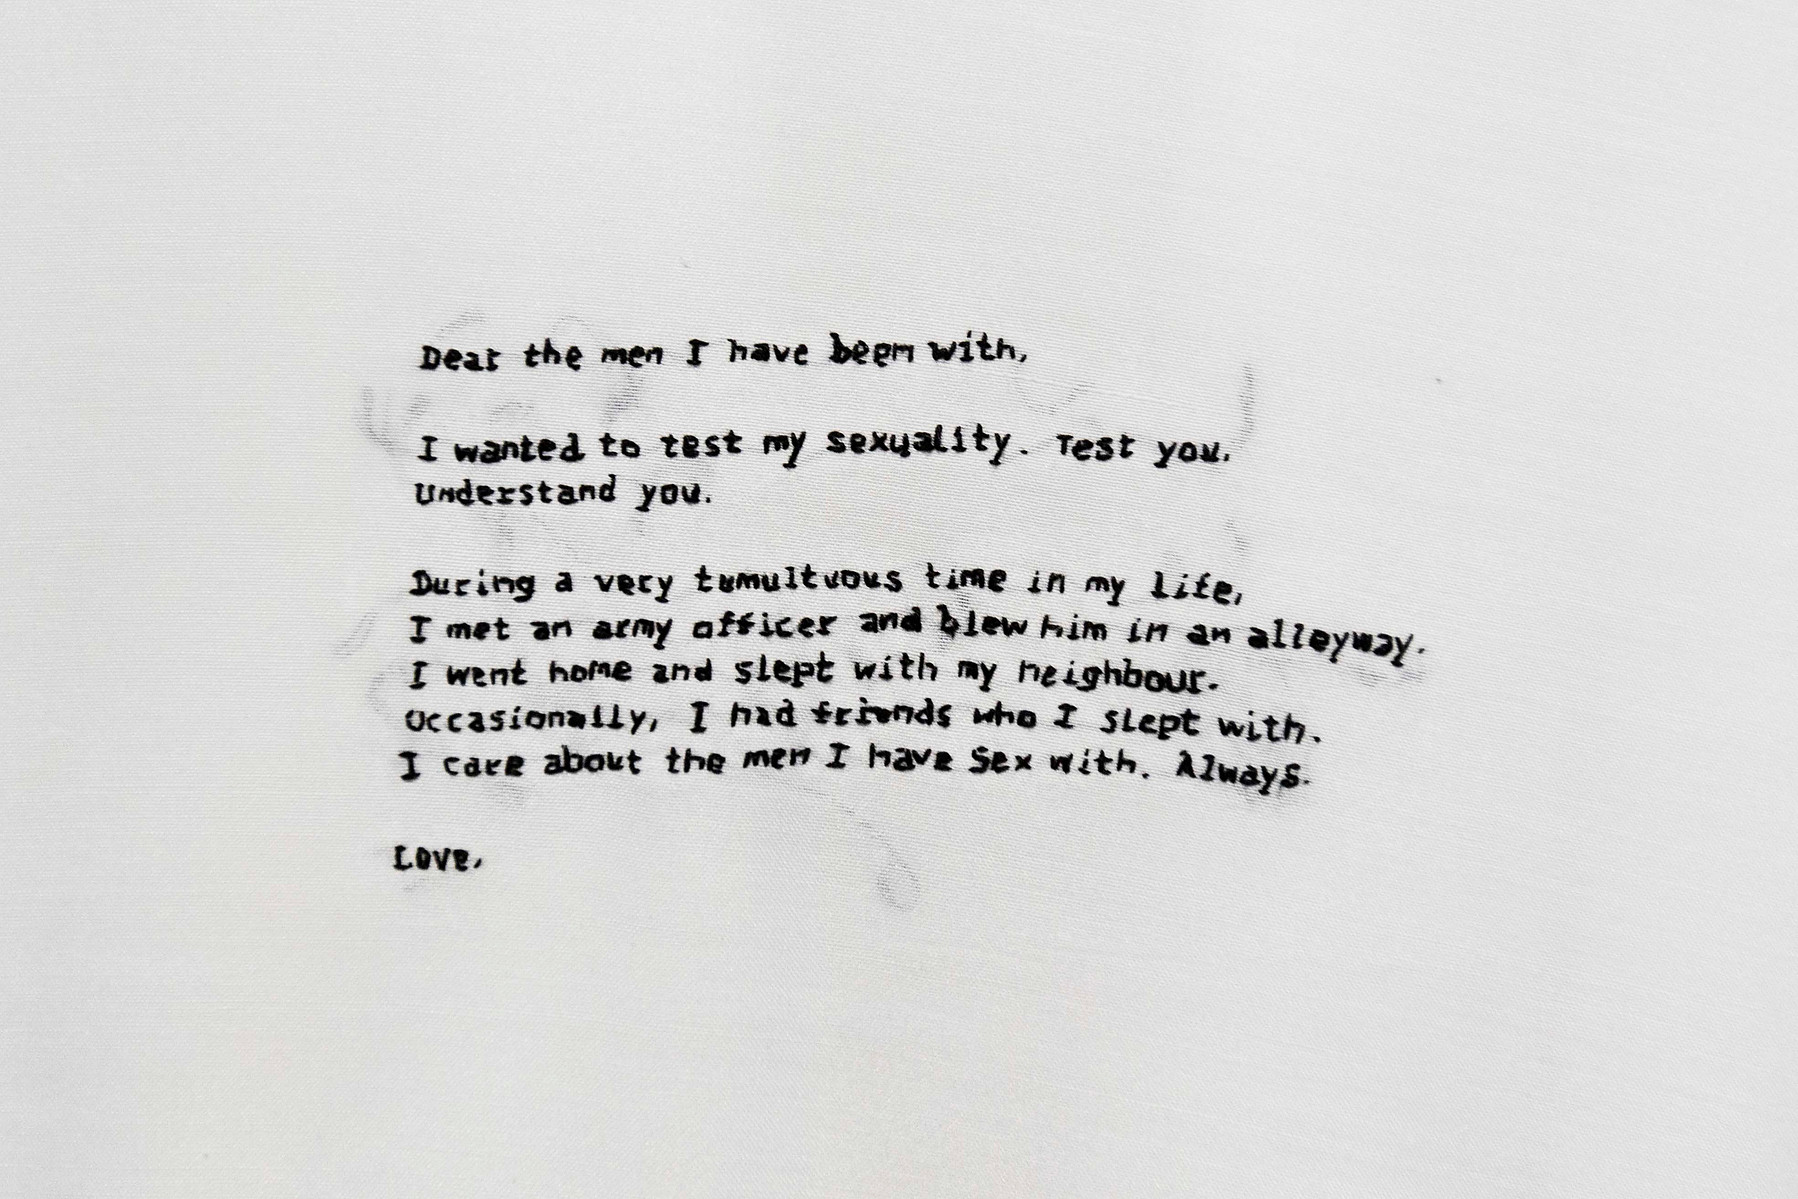 Dear the men I have been with,
I wanted to test my sexuality. Test you.
Understand you.
During a very tumultuous time in my life,
I met an army officer and blew him in an alleyway.
I went home and slept with my neighbour.
Occasionally, I had friends who I slept with.
I care about the men I have sex with. Always.
Love,